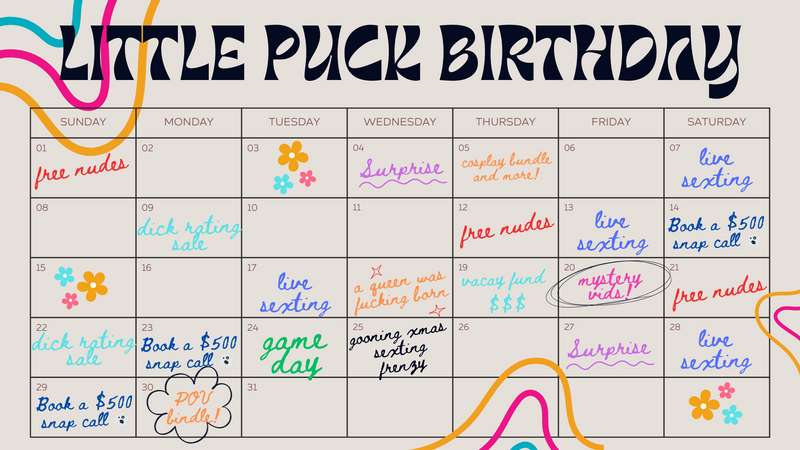 LITTLE PUCK BIRTHDAY
SUNDAY MONDAY TUESDAY WEDNESDAY THURSDAY FRIDAY SATURDAY
01
free nudes
02
03
04
Surprise
05
cosplay bundle
and more!
06
07
live
sexting
08
09
dick rating
sale
10
11
12
free nudes
13
live
sexting
14
Book a $500
snap call
15
16
17
live
sexting
18
a queen was
fucking born
19
vacay fund
$$$
20
mystery
vids!
21
free nudes
22
dick rating
sale
23
Book a $500
snap call
24
game
day
25
gooning xmas
sexting
frenzy
26
27
Surprise
28
live
sexting
29
Book a $500
snap call
30
POV
bindle!
31